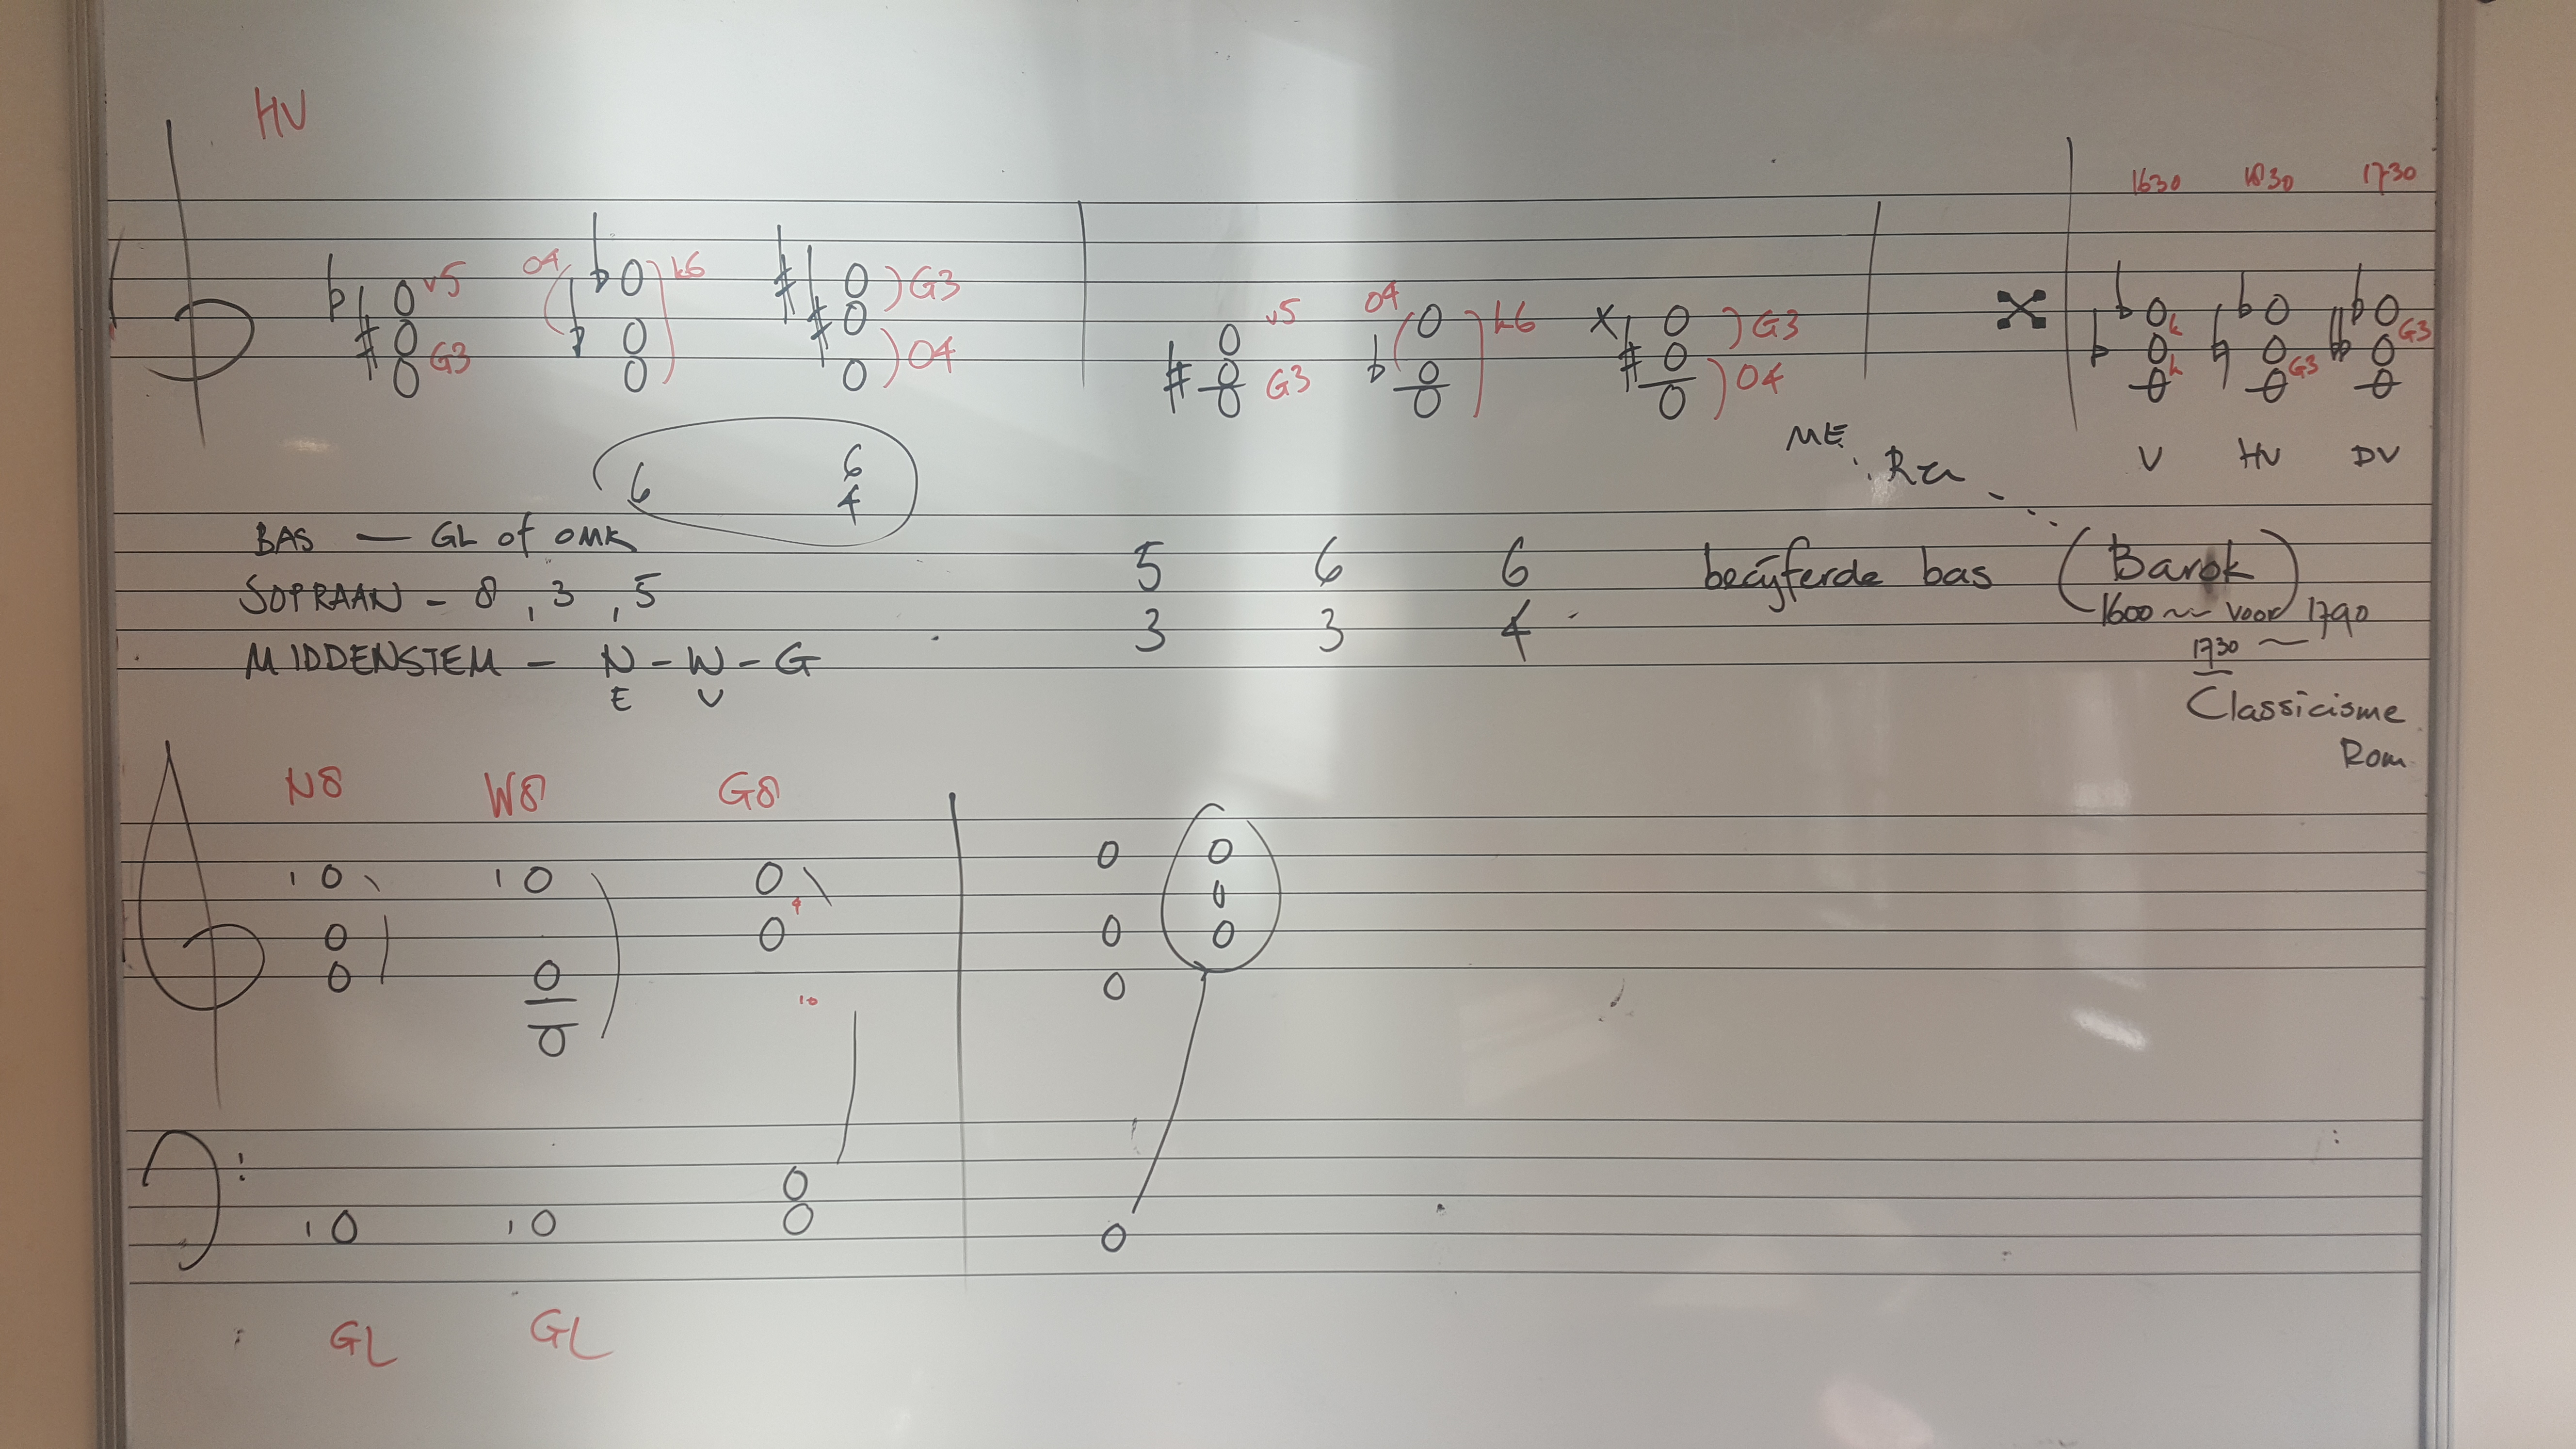 HV
1630 1830 1730
v5 G3 04 k6 G3 04 v5 G3 04 k6 G3 04 k k G3 G3
V HV DV
6 6
4
ME
BAS — GL of OMK
SOPRAAN - 8, 3, 5
MIDDENSTEM - N - W - G
E V
5 6 6
3 3 4
becÿferde bas (Barok)
1600 ~ voor 1790
1730 ~
Classicisme
Rom
N8 W8 G8
4
10
GL GL